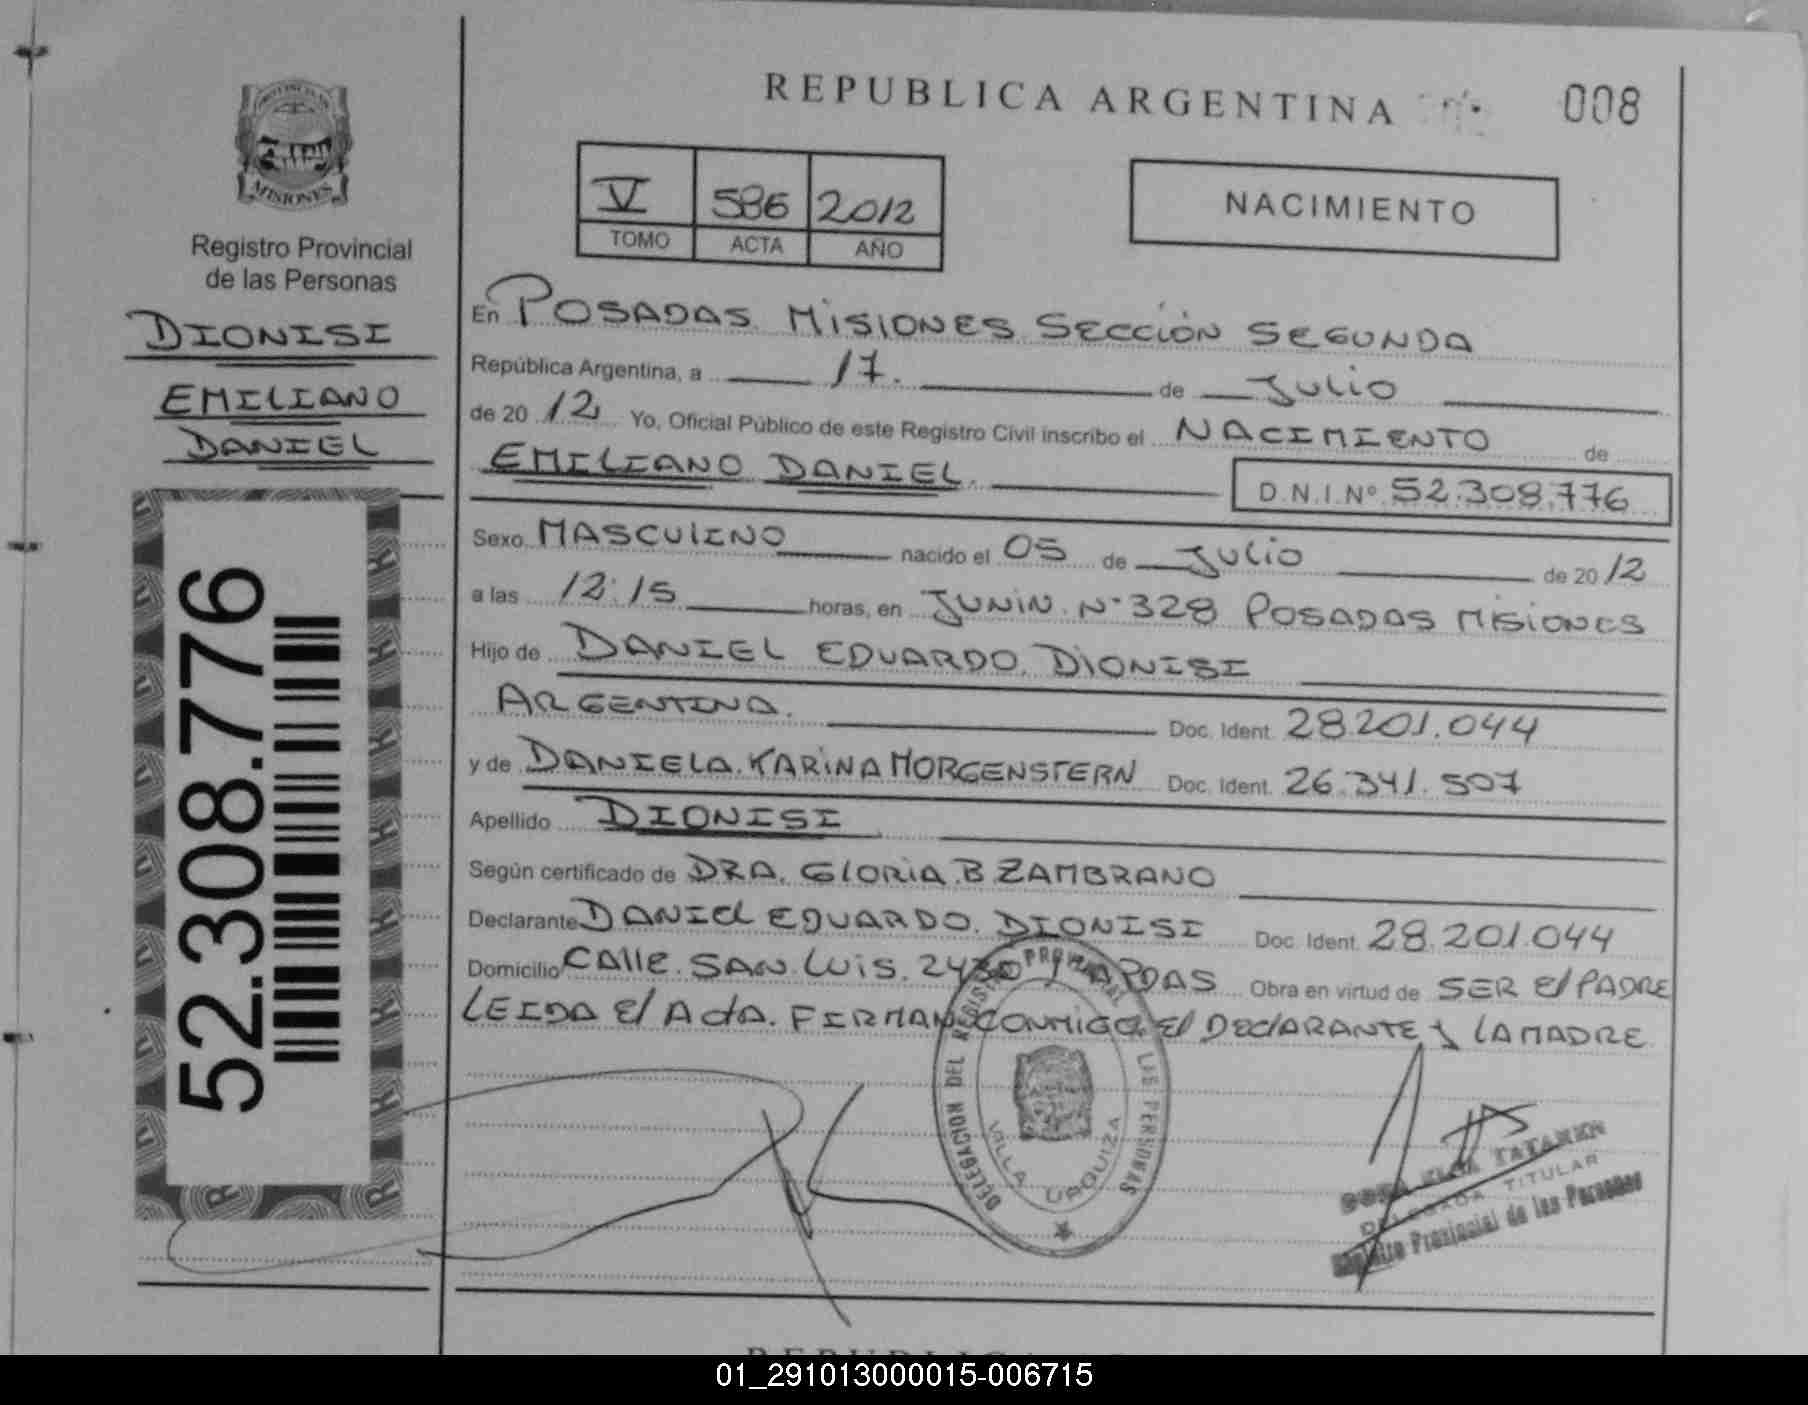 REPUBLICA ARGENTINA
008
V 586 2012
TOMO ACTA AÑO
NACIMIENTO
PROVINCIA DE
MISIONES
Registro Provincial
de las Personas
DIONISI
EMILIANO
DANIEL
52.308.776
En POSADAS MISIONES SECCIÓN SEGUNDA
República Argentina, a 17. de JULIO
de 20 12 Yo, Oficial Público de este Registro Civil inscribo el NACIMIENTO de
EMILIANO DANIEL. D.N.I.Nº 52.308.776
Sexo MASCULINO nacido el 05 de JULIO de 20 12
a las 12:15 horas, en JUNIN Nº 328 POSADAS MISIONES
Hijo de DANIEL EDUARDO DIONISI
ARGENTINA. Doc. Ident. 28.201.044
y de DANIELA KARINA MORGENSTERN Doc. Ident. 26.341.507
Apellido DIONISI
Según certificado de DRA. GLORIA B ZAMBRANO
Declarante DANIEL EDUARDO DIONISI Doc. Ident. 28.201.044
Domicilio CALLE SAN LUIS 2430 Obra en virtud de SER El PADRE
LEIDA El ActA. FIRMAN CONMIGO El DEClARANTE y LA MADRE
DELEGACION DEL REGISTRO PROVINCIAL DE LAS PERSONAS
VILLA URQUIZA
DELEGADA TITULAR
Registro Provincial de las Personas
01_291013000015-006715